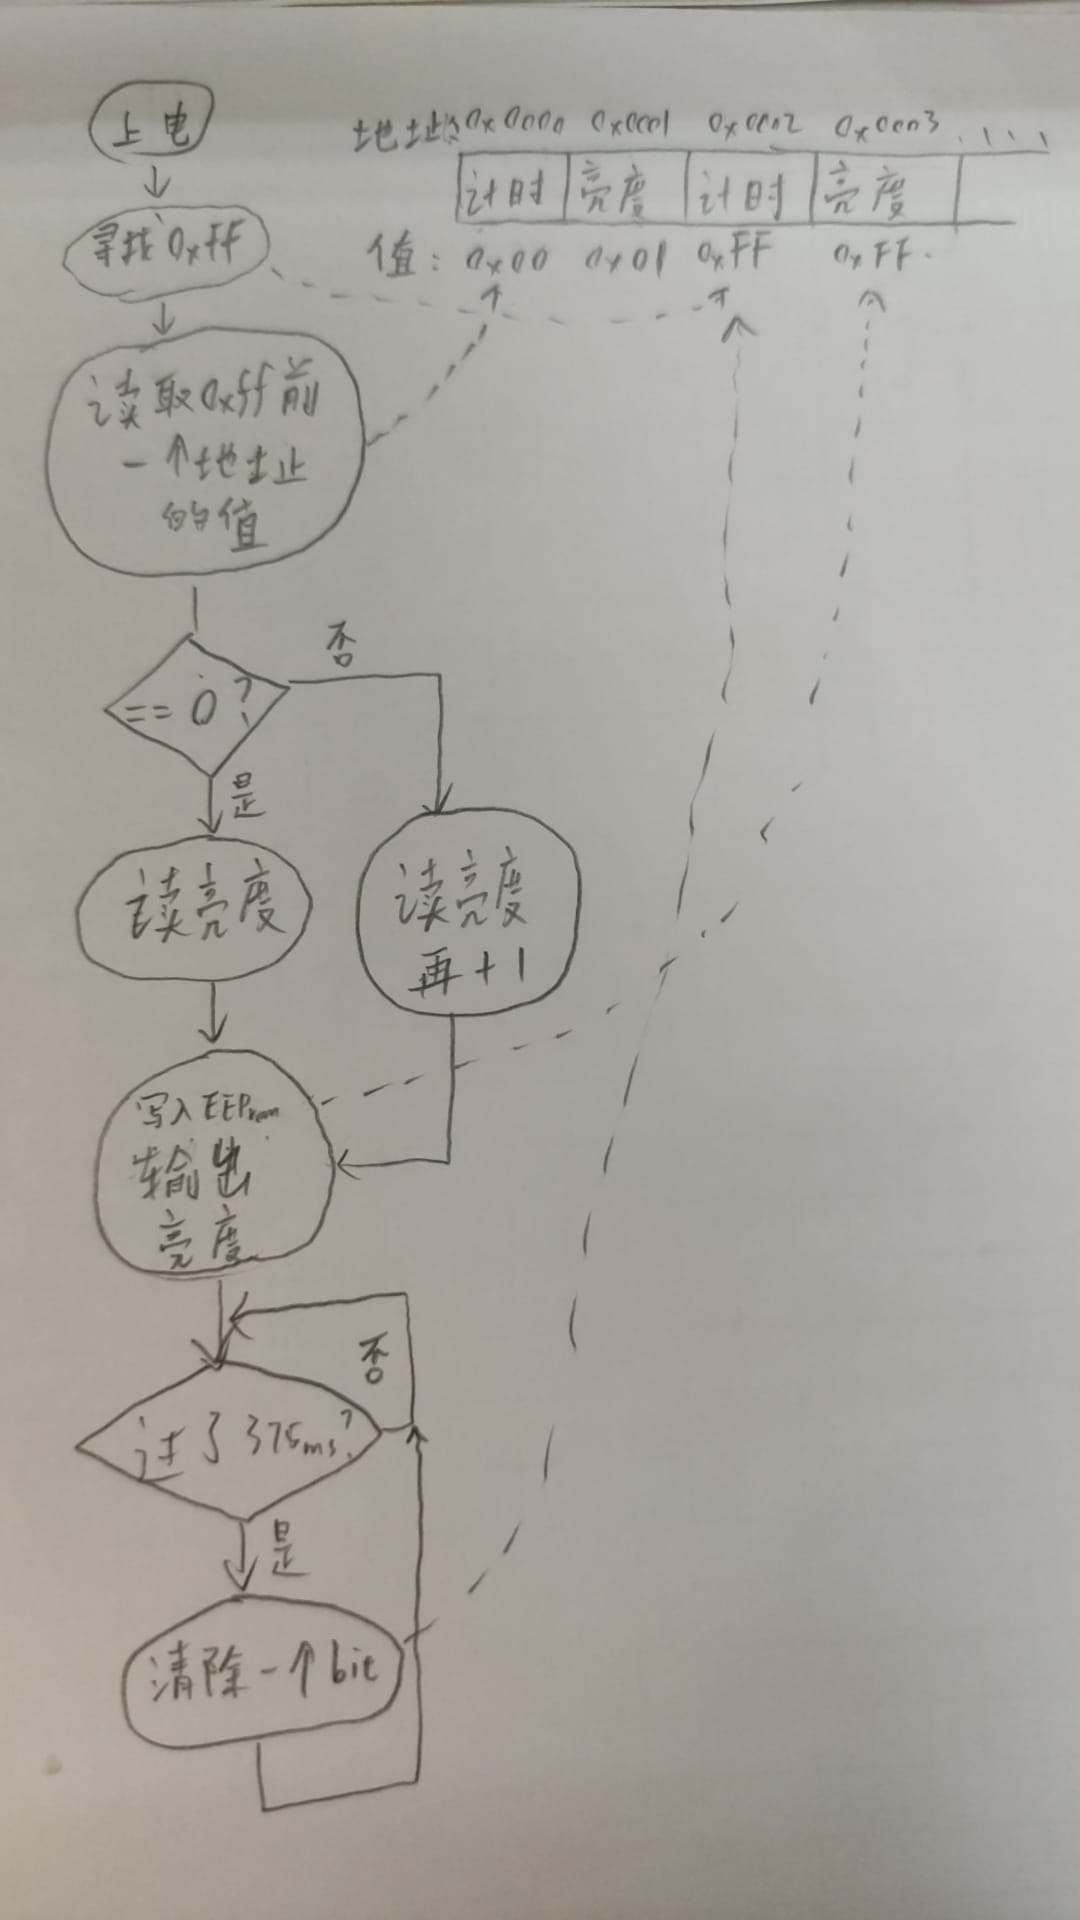 上电
寻找0xFF
读取0xff前
一个地址
的值
== 0?
否
是
读亮度
读亮度
再+1
写入EEProm
输出
亮度
否
过了375ms?
是
清除一个bit
地址:0x0000 0x0001 0x0002 0x0003 ....
计时 亮度 计时 亮度
值: 0x00 0x01 0xFF 0xFF